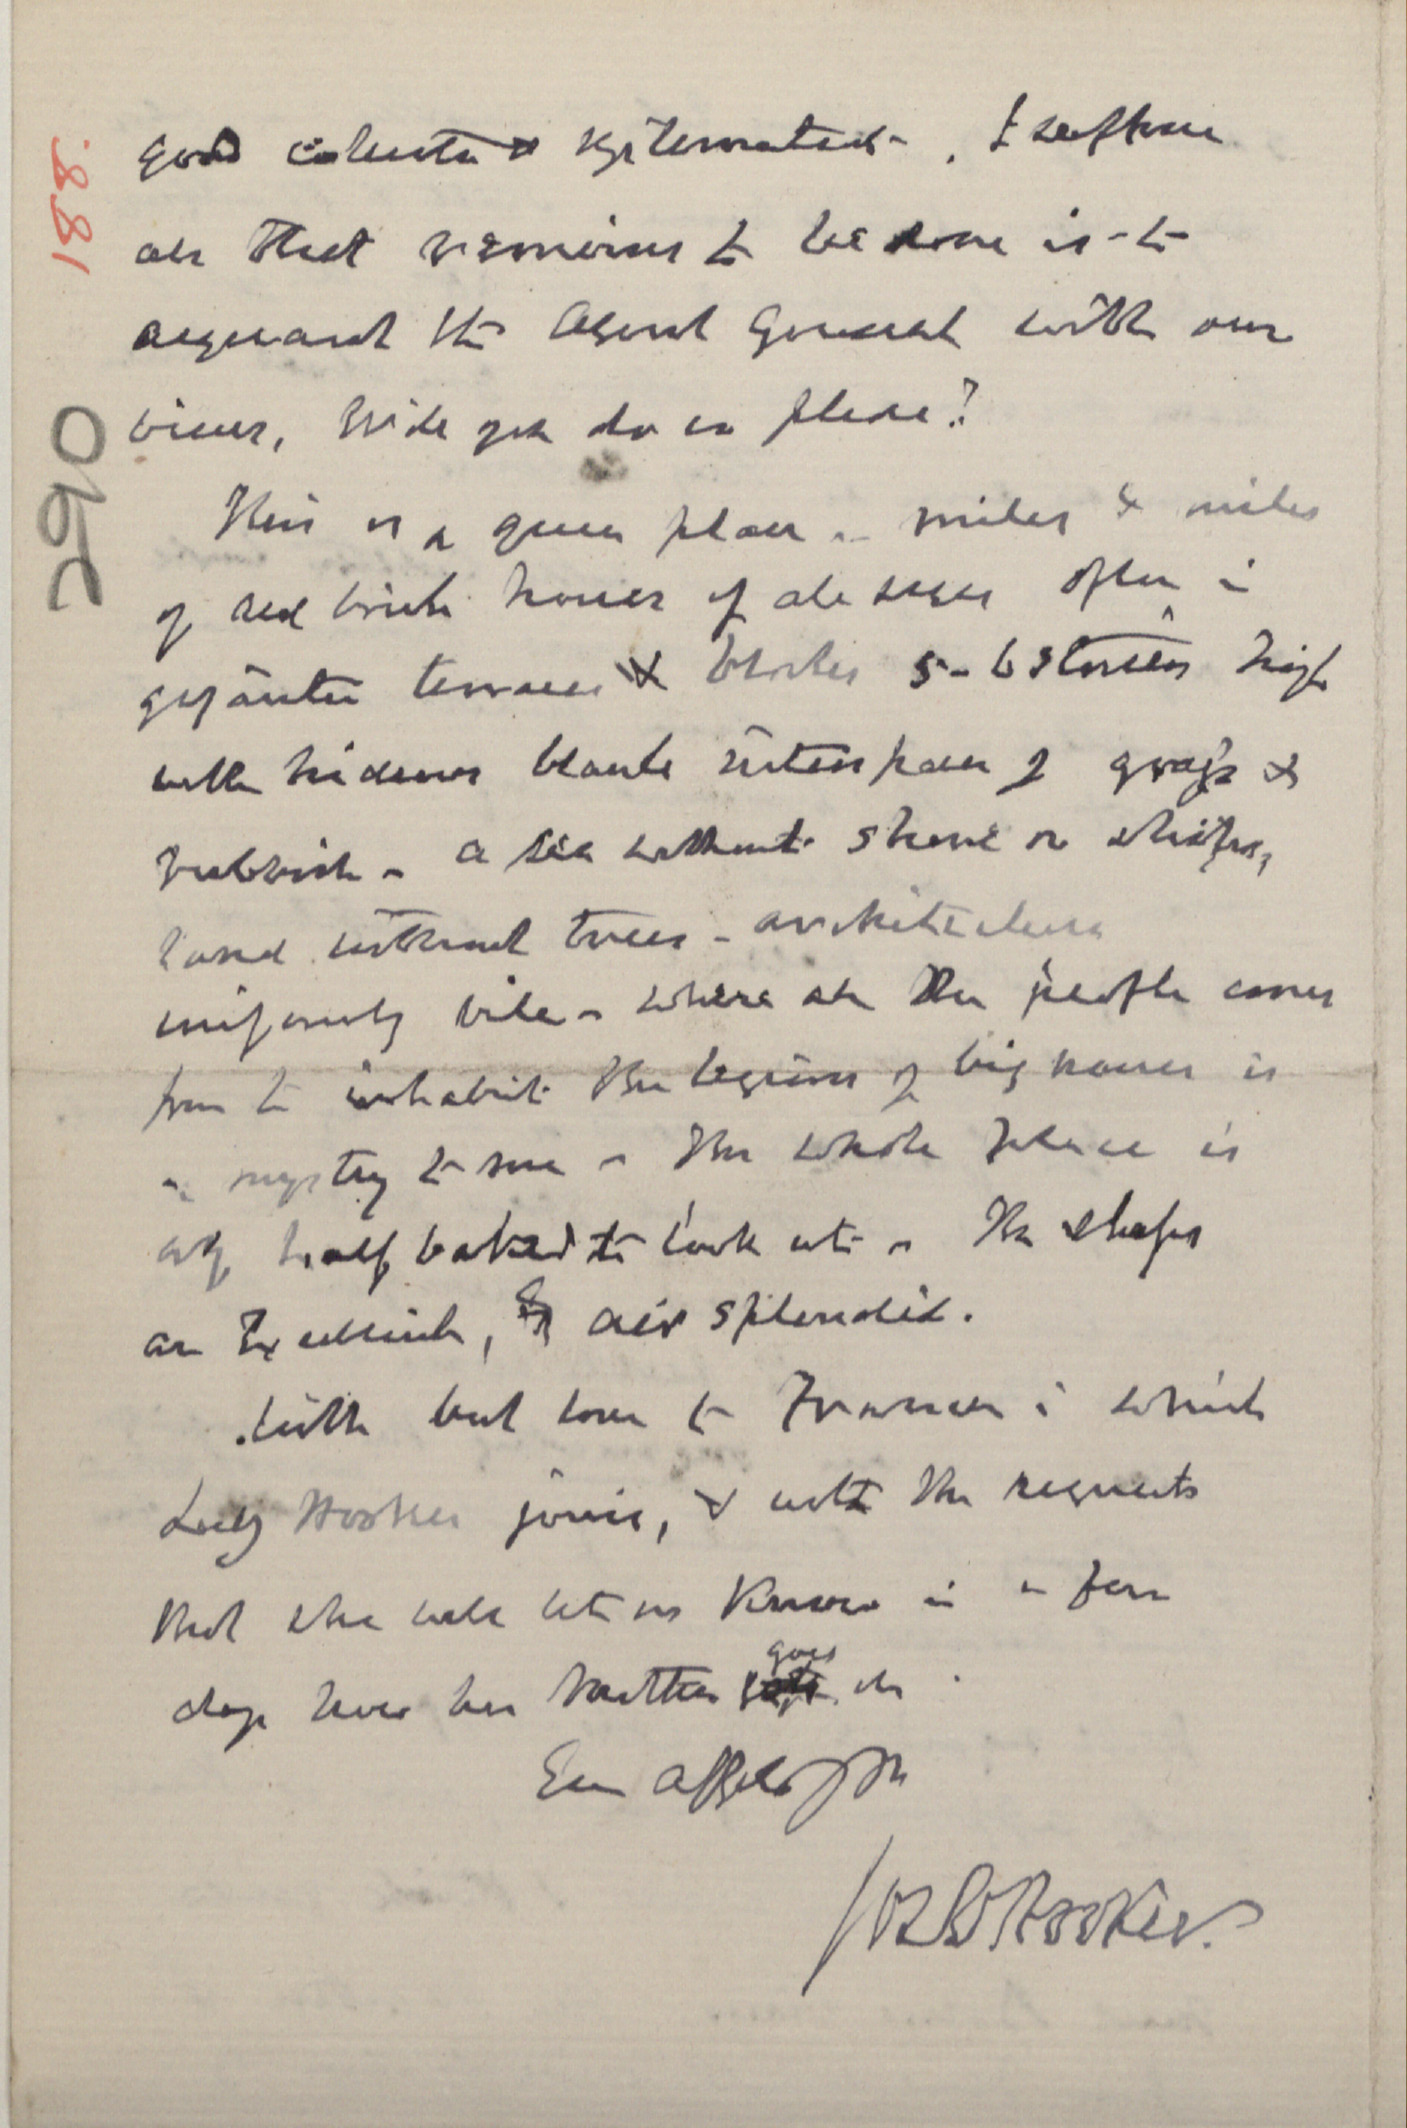 188.
290
good collector & systematist. I suppose
all that remains to be done is to
acquaint the Agent General with our
views, Will you do so please?
This is a queer place — miles & miles
of red brick houses of all sizes often in
gigantic terraces & blocks 5-6 stories high
with hideous blank interspaces of grass &
rubbish — a sea without shore or ships,
land without trees — architecture
uniformly vile — where all the people come
from to inhabit the legions of big houses is
a mystery to me — The whole place is
only half baked to look at — The shops
are Excellent, & air splendid.
With best love to Frances in which
Lady Hooker joins, & with the requests
that she will let us know in a few
days how her brother goes on.
Ever affely yrs
Jos D Hooker.